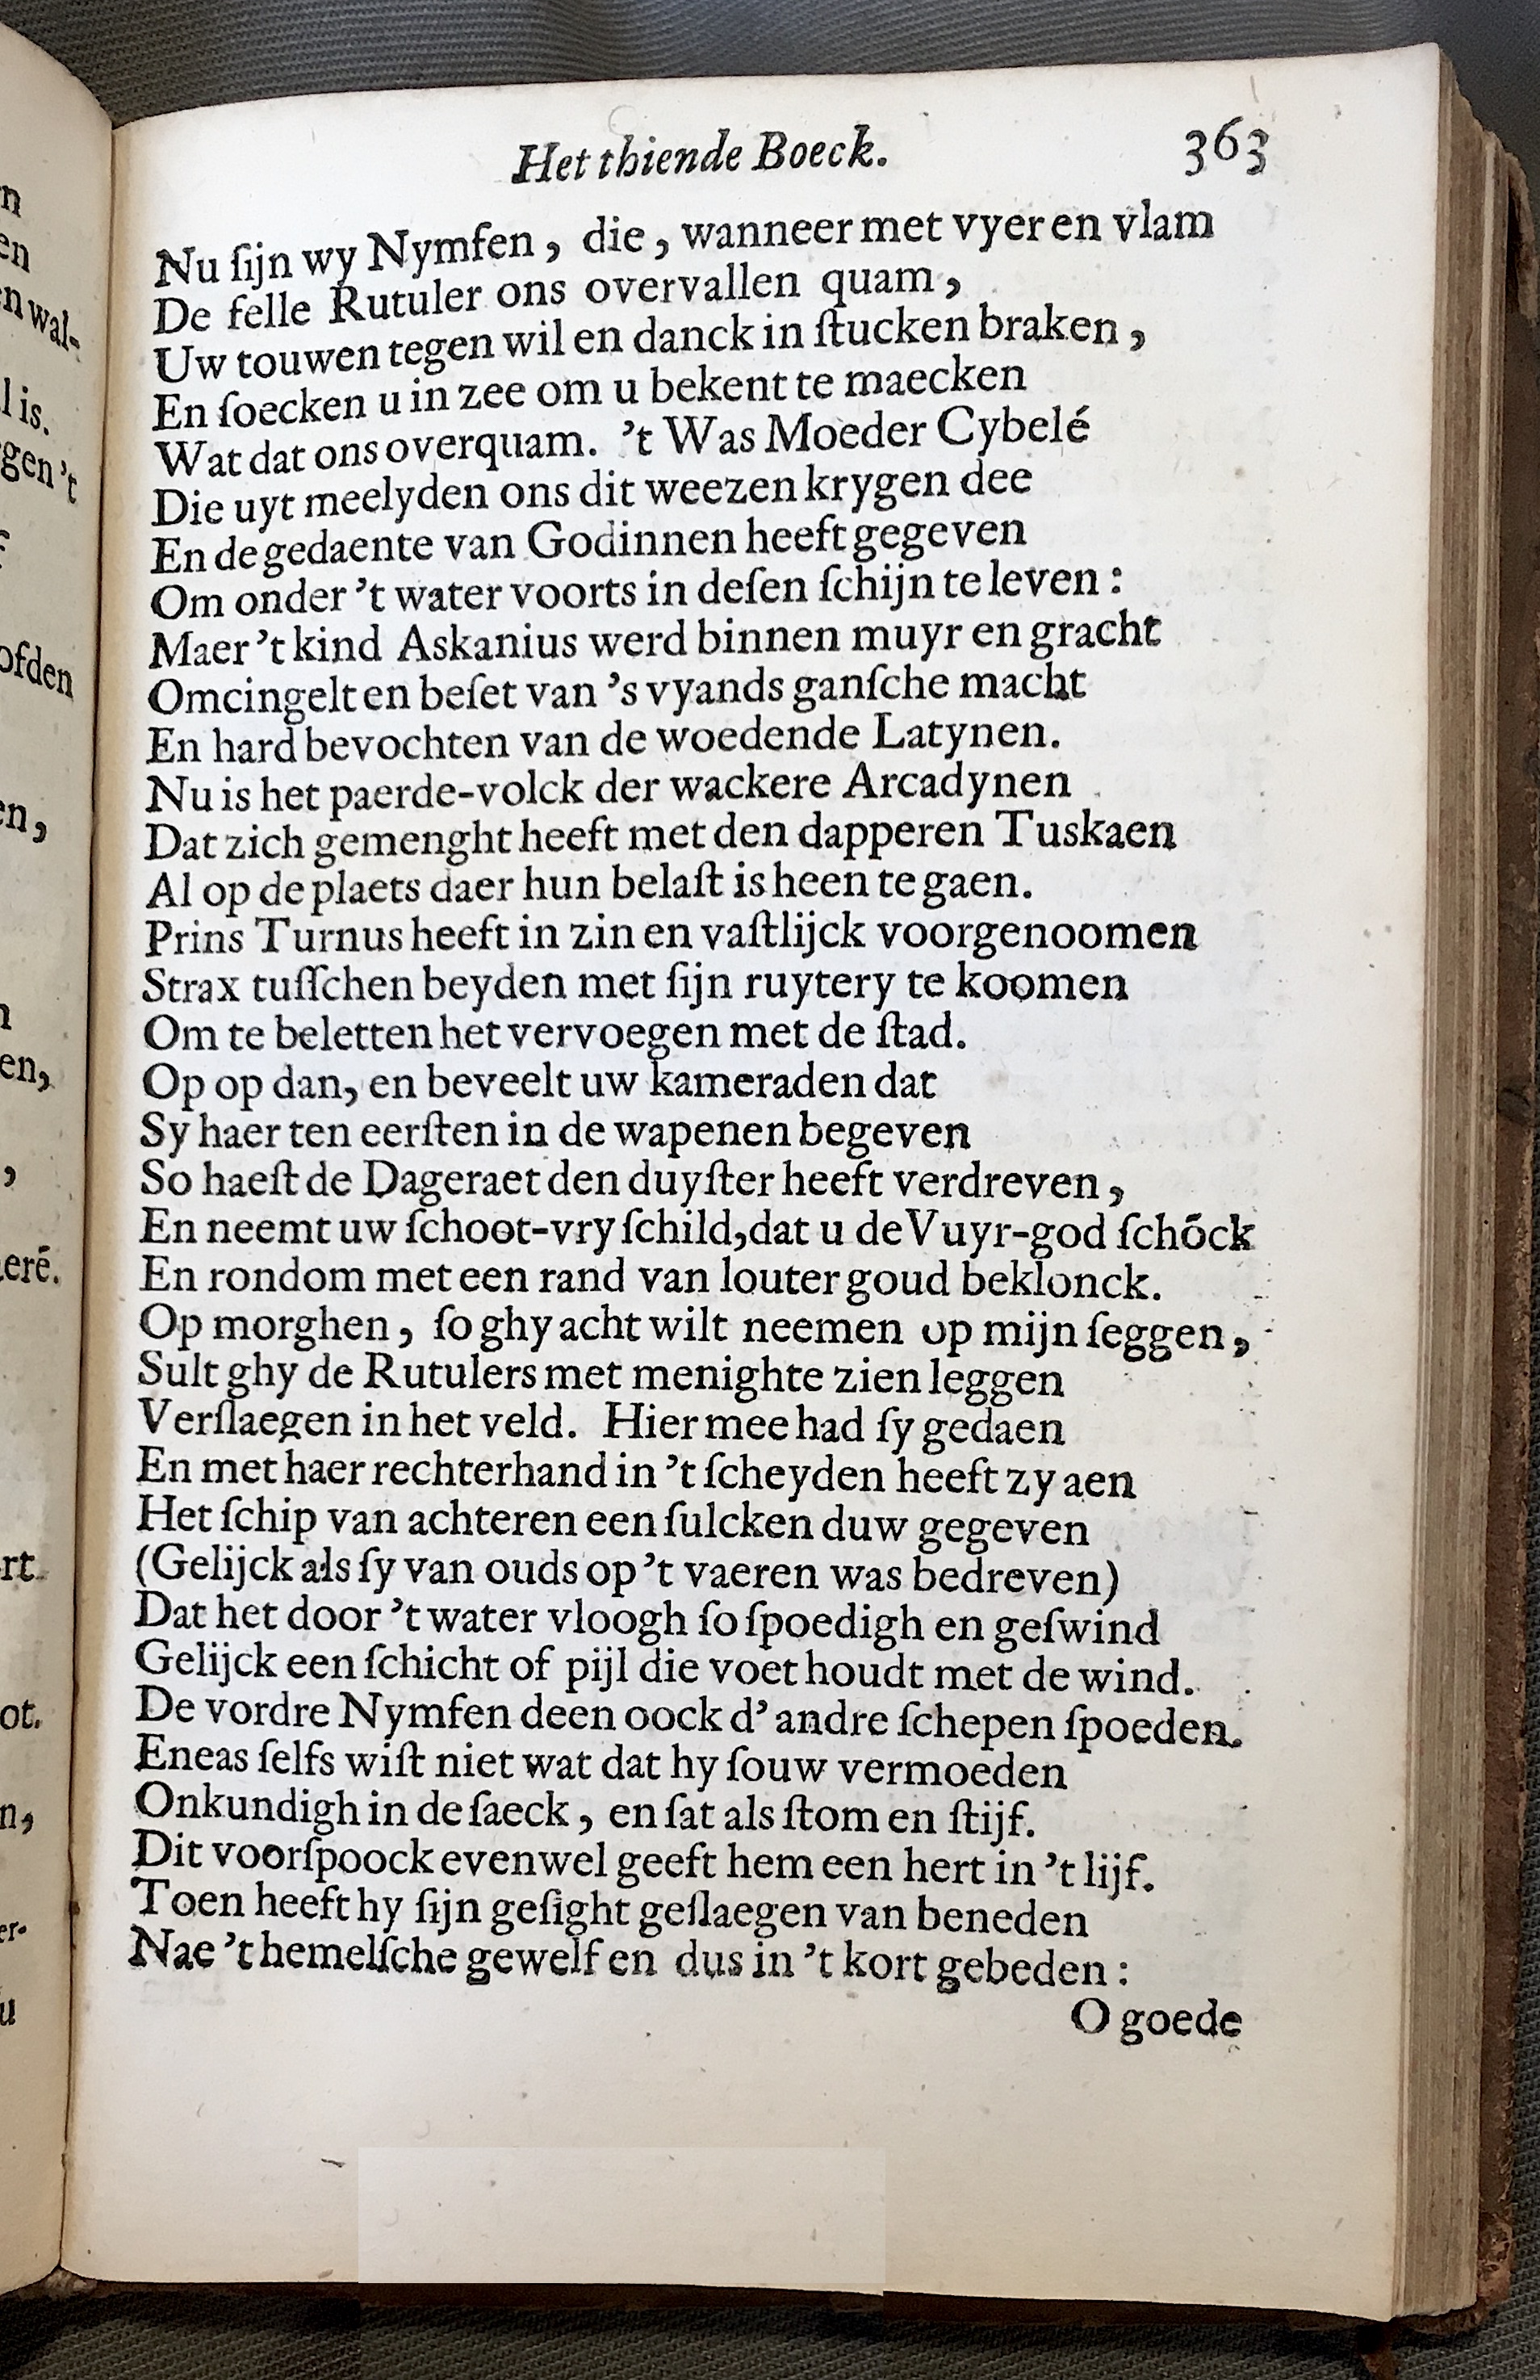 Het thiende Boeck. 363
Nu ſijn wy Nymfen, die, wanneer met vyer en vlam
De felle Rutuler ons overvallen quam,
Uw touwen tegen wil en danck in ſtucken braken,
En ſoecken u in zee om u bekent te maecken
Wat dat ons overquam. 't Was Moeder Cybelé
Die uyt meelyden ons dit weezen krygen dee
En de gedaente van Godinnen heeft gegeven
Om onder 't water voorts in deſen ſchijn te leven:
Maer 't kind Askanius werd binnen muyr en gracht
Omcingelt en beſet van 's vyands ganſche macht
En hard bevochten van de woedende Latynen.
Nu is het paerde-volck der wackere Arcadynen
Dat zich gemenght heeft met den dapperen Tuskaen
Al op de plaets daer hun belaſt is heen te gaen.
Prins Turnus heeft in zin en vaſtlijck voorgenoomen
Strax tuſſchen beyden met ſijn ruytery te koomen
Om te beletten het vervoegen met de ſtad.
Op op dan, en beveelt uw kameraden dat
Sy haer ten eerſten in de wapenen begeven
So haeſt de Dageraet den duyſter heeft verdreven,
En neemt uw ſchoot-vry ſchild, dat u de Vuyr-god ſchōck
En rondom met een rand van louter goud beklonck.
Op morghen, ſo ghy acht wilt neemen op mijn ſeggen,
Sult ghy de Rutulers met menighte zien leggen
Verſlaegen in het veld. Hier mee had ſy gedaen
En met haer rechterhand in 't ſcheyden heeft zy aen
Het ſchip van achteren een ſulcken duw gegeven
(Gelijck als ſy van ouds op 't vaeren was bedreven)
Dat het door 't water vloogh ſo ſpoedigh en geſwind
Gelijck een ſchicht of pijl die voet houdt met de wind.
De vordre Nymfen deen oock d' andre ſchepen ſpoeden.
Eneas ſelfs wiſt niet wat dat hy ſouw vermoeden
Onkundigh in de ſaeck, en ſat als ſtom en ſtijf.
Dit voorſpoock evenwel geeft hem een hert in 't lijf.
Toen heeft hy ſijn geſight geſlaegen van beneden
Nae 't hemelſche gewelf en dus in 't kort gebeden:
O goede